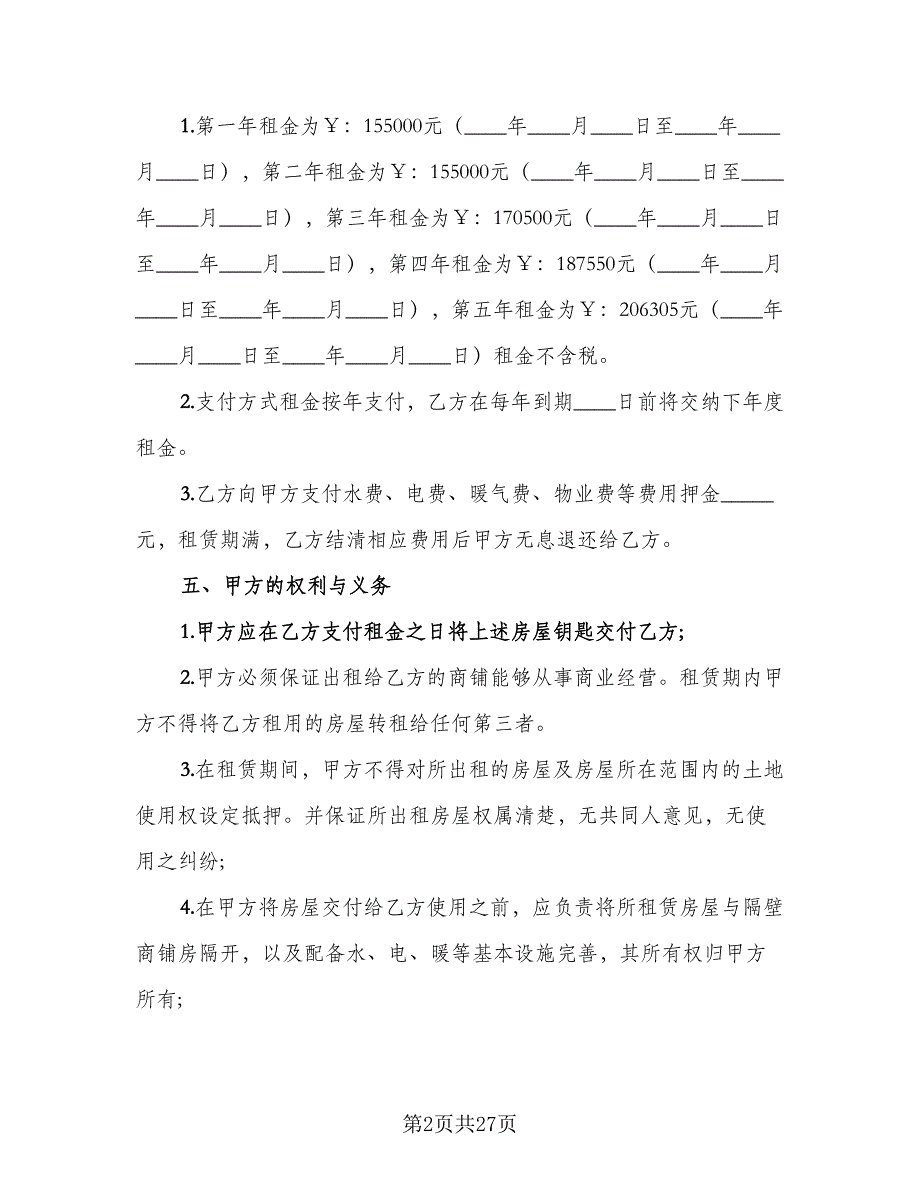 1.第一年租金为￥：155000元（____年____月____日至____年____
月____日），第二年租金为￥：155000元（____年____月____日至____
年____月____日），第三年租金为￥：170500元（____年____月____日
至____年____月____日），第四年租金为￥：187550元（____年____月
____日至____年____月____日），第五年租金为￥：206305元（____年
____月____日至____年____月____日）租金不含税。
2.支付方式租金按年支付，乙方在每年到期____日前将交纳下年度
租金。
3.乙方向甲方支付水费、电费、暖气费、物业费等费用押金_____
元，租赁期满，乙方结清相应费用后甲方无息退还给乙方。
五、甲方的权利与义务
1.甲方应在乙方支付租金之日将上述房屋钥匙交付乙方;
2.甲方必须保证出租给乙方的商铺能够从事商业经营。租赁期内甲
方不得将乙方租用的房屋转租给任何第三者。
3.在租赁期间，甲方不得对所出租的房屋及房屋所在范围内的土地
使用权设定抵押。并保证所出租房屋权属清楚，无共同人意见，无使
用之纠纷;
4.在甲方将房屋交付给乙方使用之前，应负责将所租赁房屋与隔壁
商铺房隔开，以及配备水、电、暖等基本设施完善，其所有权归甲方
所有;
第2页共27页